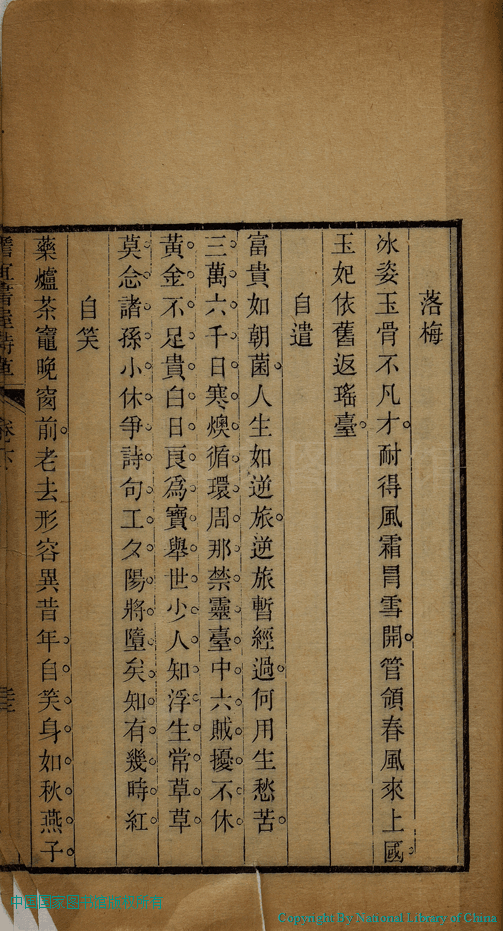 落梅
冰姿玉骨不凡才耐得風霜冐雪開管領春風來上國
玉妃依舊返瑤臺
自遣
富貴如朝菌人生如逆旅逆旅暫經過何用生愁苦
三萬六千日寒燠循環周那禁靈臺中六賊擾不休
黃金不足貴白日良爲寶舉世少人知浮生常草草
莫念諸孫小休爭詩句工夕陽將墮矣知有幾時紅
自笑
藥爐茶竈晚窗前老去形容異昔年自笑身如秋燕子
中国国家图书馆
Copyright by National Library of China